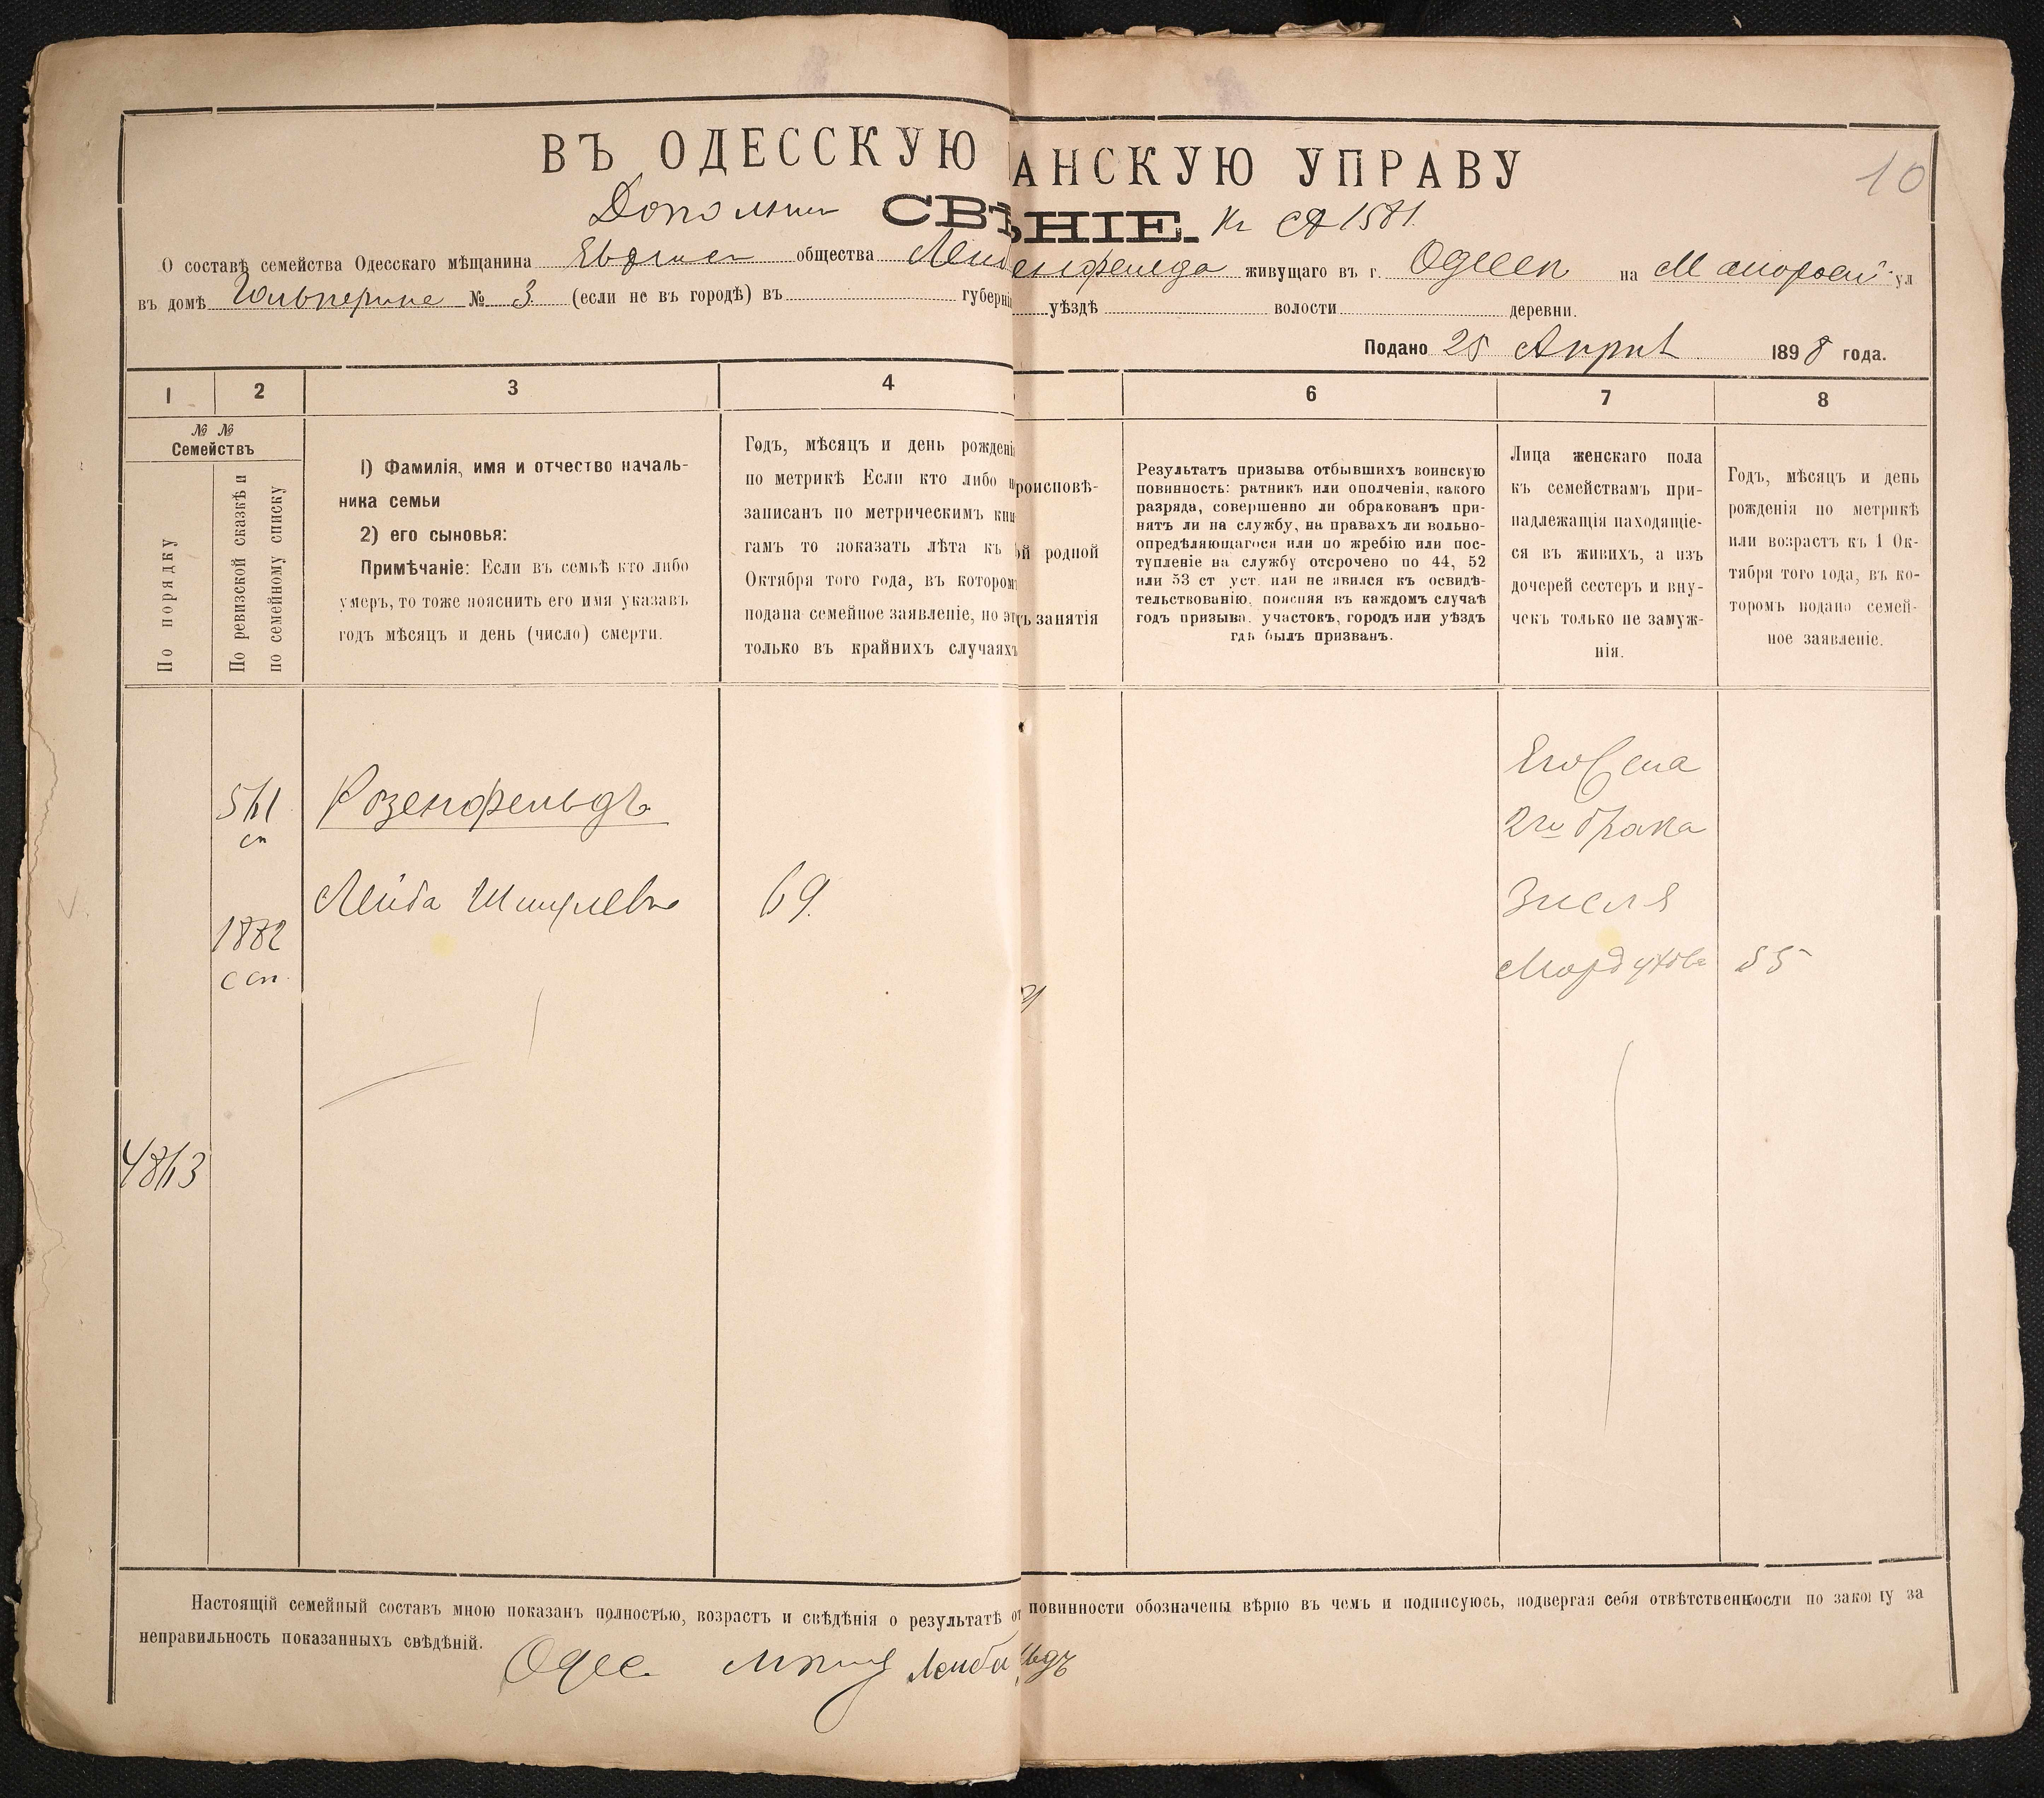 ВЪ ОДЕССКУЮ АНСКУЮ УПРАВУ
10
СВѢ НІЕ. 1581
О составѣ семейства Одесскаго мѣщанина общества живущаго въ г. Одесса на ул
въ домѣ Гальперина № 3 (если не въ городѣ) въ губерні уѣздѣ волости деревни.
Подано 25 Апрѣл 1898 года.
1 2 3 4 6 7 8
№ №
Семействъ
По порядку
По ревизской сказкѣ и
по семейному списку
1) Фамилія, имя и отчество началь-
ника семьи
2) его сыновья:
Примѣчаніе: Если въ семьѣ кто либо
умеръ, то тоже пояснить его имя указавъ
годъ мѣсяцъ и день (число) смерти.
Годъ, мѣсяцъ и день рождені
по метрикѣ Если кто либо н
записанъ по метрическимъ кни
гамъ то показать лѣта къ
Октября того года, въ котором
подана семейное заявленіе, но эт
только въ крайнихъ случаяхъ
роисповѣ-
й родной
ъ занятія
Результатъ призыва отбывшихъ воинскую
повинность: ратникъ или ополченія, какого
разряда, совершенно ли обракованъ при-
нятъ ли на службу, на правахъ ли вольно-
опредѣляющагося или по жребію или пос-
тупленіе на службу отсрочено по 44, 52
или 53 ст уст. или не явился къ освидѣ-
тельствованію, поясняя въ каждомъ случаѣ
годъ призыва, участокъ, городъ или уѣздъ
гдѣ былъ призванъ.
Лица женскаго пола
къ семействамъ при-
надлежащія находящіе-
ся въ живихъ, а изъ
дочерей сестеръ и вну-
чекъ только не замуж-
нія.
Годъ, мѣсяцъ и день
рожденія по метрикѣ
или возрастъ къ 1 Ок-
тября того года, въ ко-
торомъ подано семей-
ное заявленіе.
Розенфельдъ
Лейба 69.
1882
Его жена
2го брака
Зисля
55
Настоящій семейный составъ мною показанъ полностью, возрастъ и свѣдѣнія о результатѣ от повинности обозначены вѣрно въ чемъ и подписуюсь, подвергая себя отвѣтственности по закону за
неправильность показанныхъ свѣдѣній.
Лейба льдъ